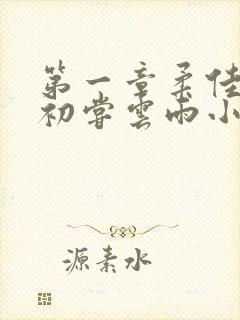 第一章柔佳
初尝雲雨小
源素水